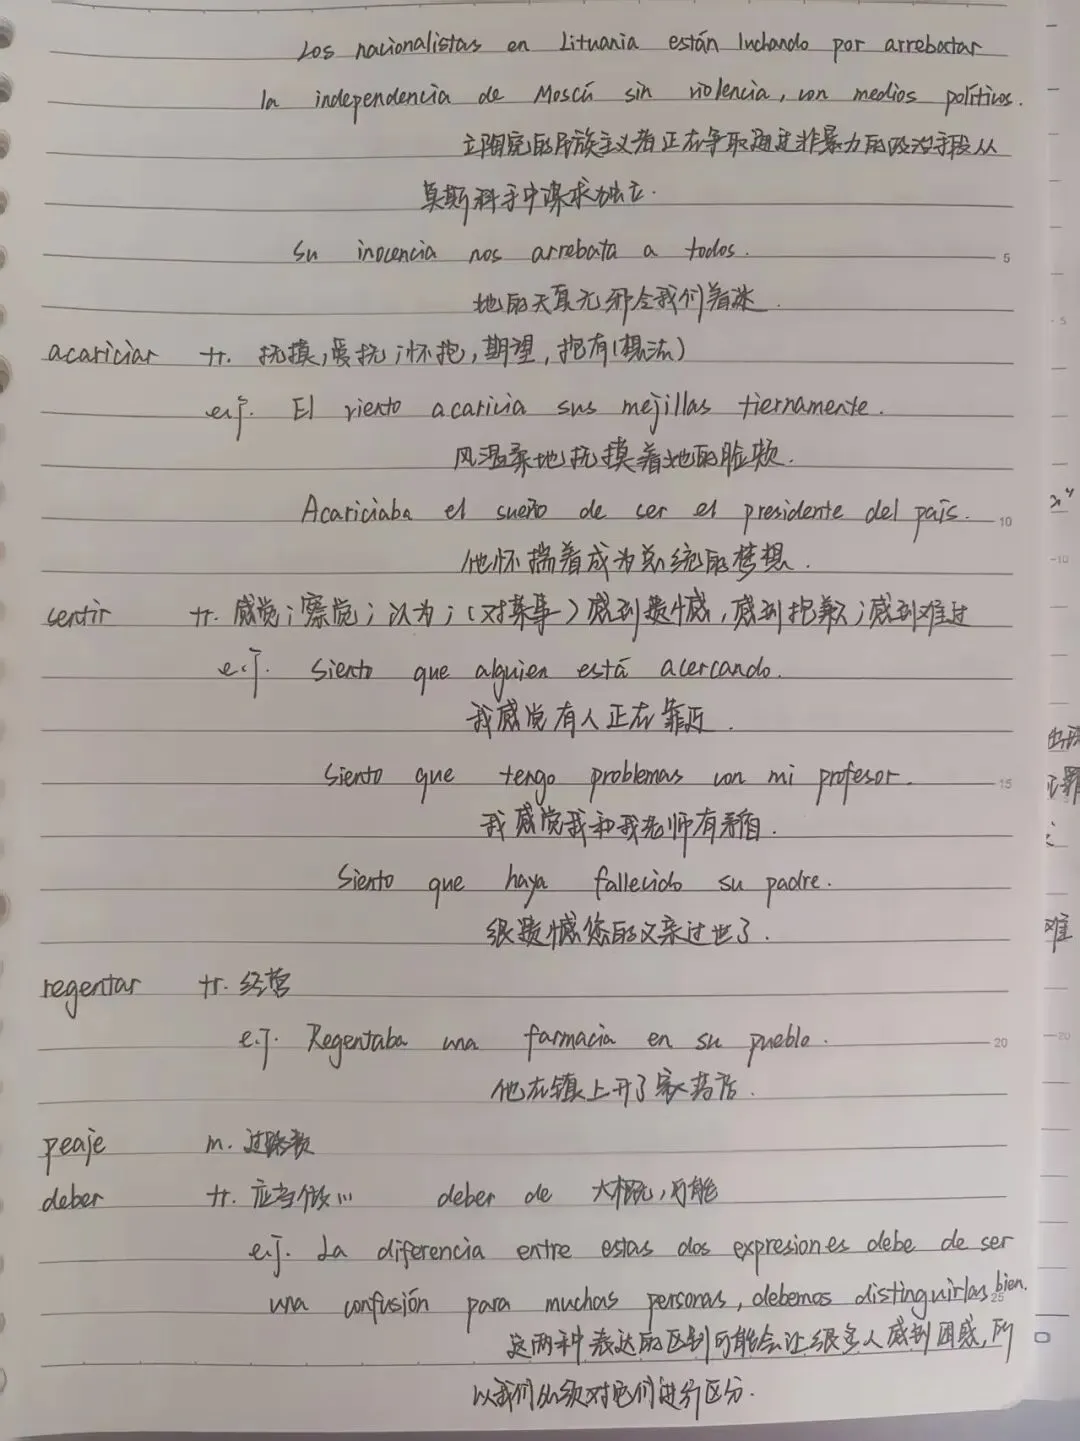 Los nacionalistas en Lituania están luchando por arrebatar
la independencia de Moscú sin violencia, con medios políticos.
立陶宛的民族主义者正在争取通过非暴力的政治手段从
莫斯科手中谋求独立.
Su inocencia nos arrebata a todos.
5
她的天真无邪令我们着迷.
acariciar tr. 抚摸,爱抚;怀抱,期望,抱有(想法)
e.j. El viento acaricia sus mejillas tiernamente.
风温柔地抚摸着她的脸颊.
Acariciaba el sueño de ser el presidente del país.
10
他怀揣着成为总统的梦想.
sentir tr. 感觉;察觉;认为;(对某事)感到遗憾,感到抱歉;感到难过
e.j. Siento que alguien está acercando.
我感觉有人正在靠近.
Siento que tengo problemas con mi profesor.
15
我感觉我和我老师有矛盾.
Siento que haya fallecido su padre.
很遗憾您的父亲过世了.
regentar tr. 经营
e.j. Regentaba una farmacia en su pueblo.
20
他在镇上开了家药店.
peaje m. 过路费
deber tr. 应当做... deber de 大概,可能
e.j. La diferencia entre estas dos expresiones debe de ser
una confusión para muchas personas, debemos distinguirlas bien.
25
这两种表达的区别可能会让很多人感到困惑,所
以我们必须对它们进行区分.